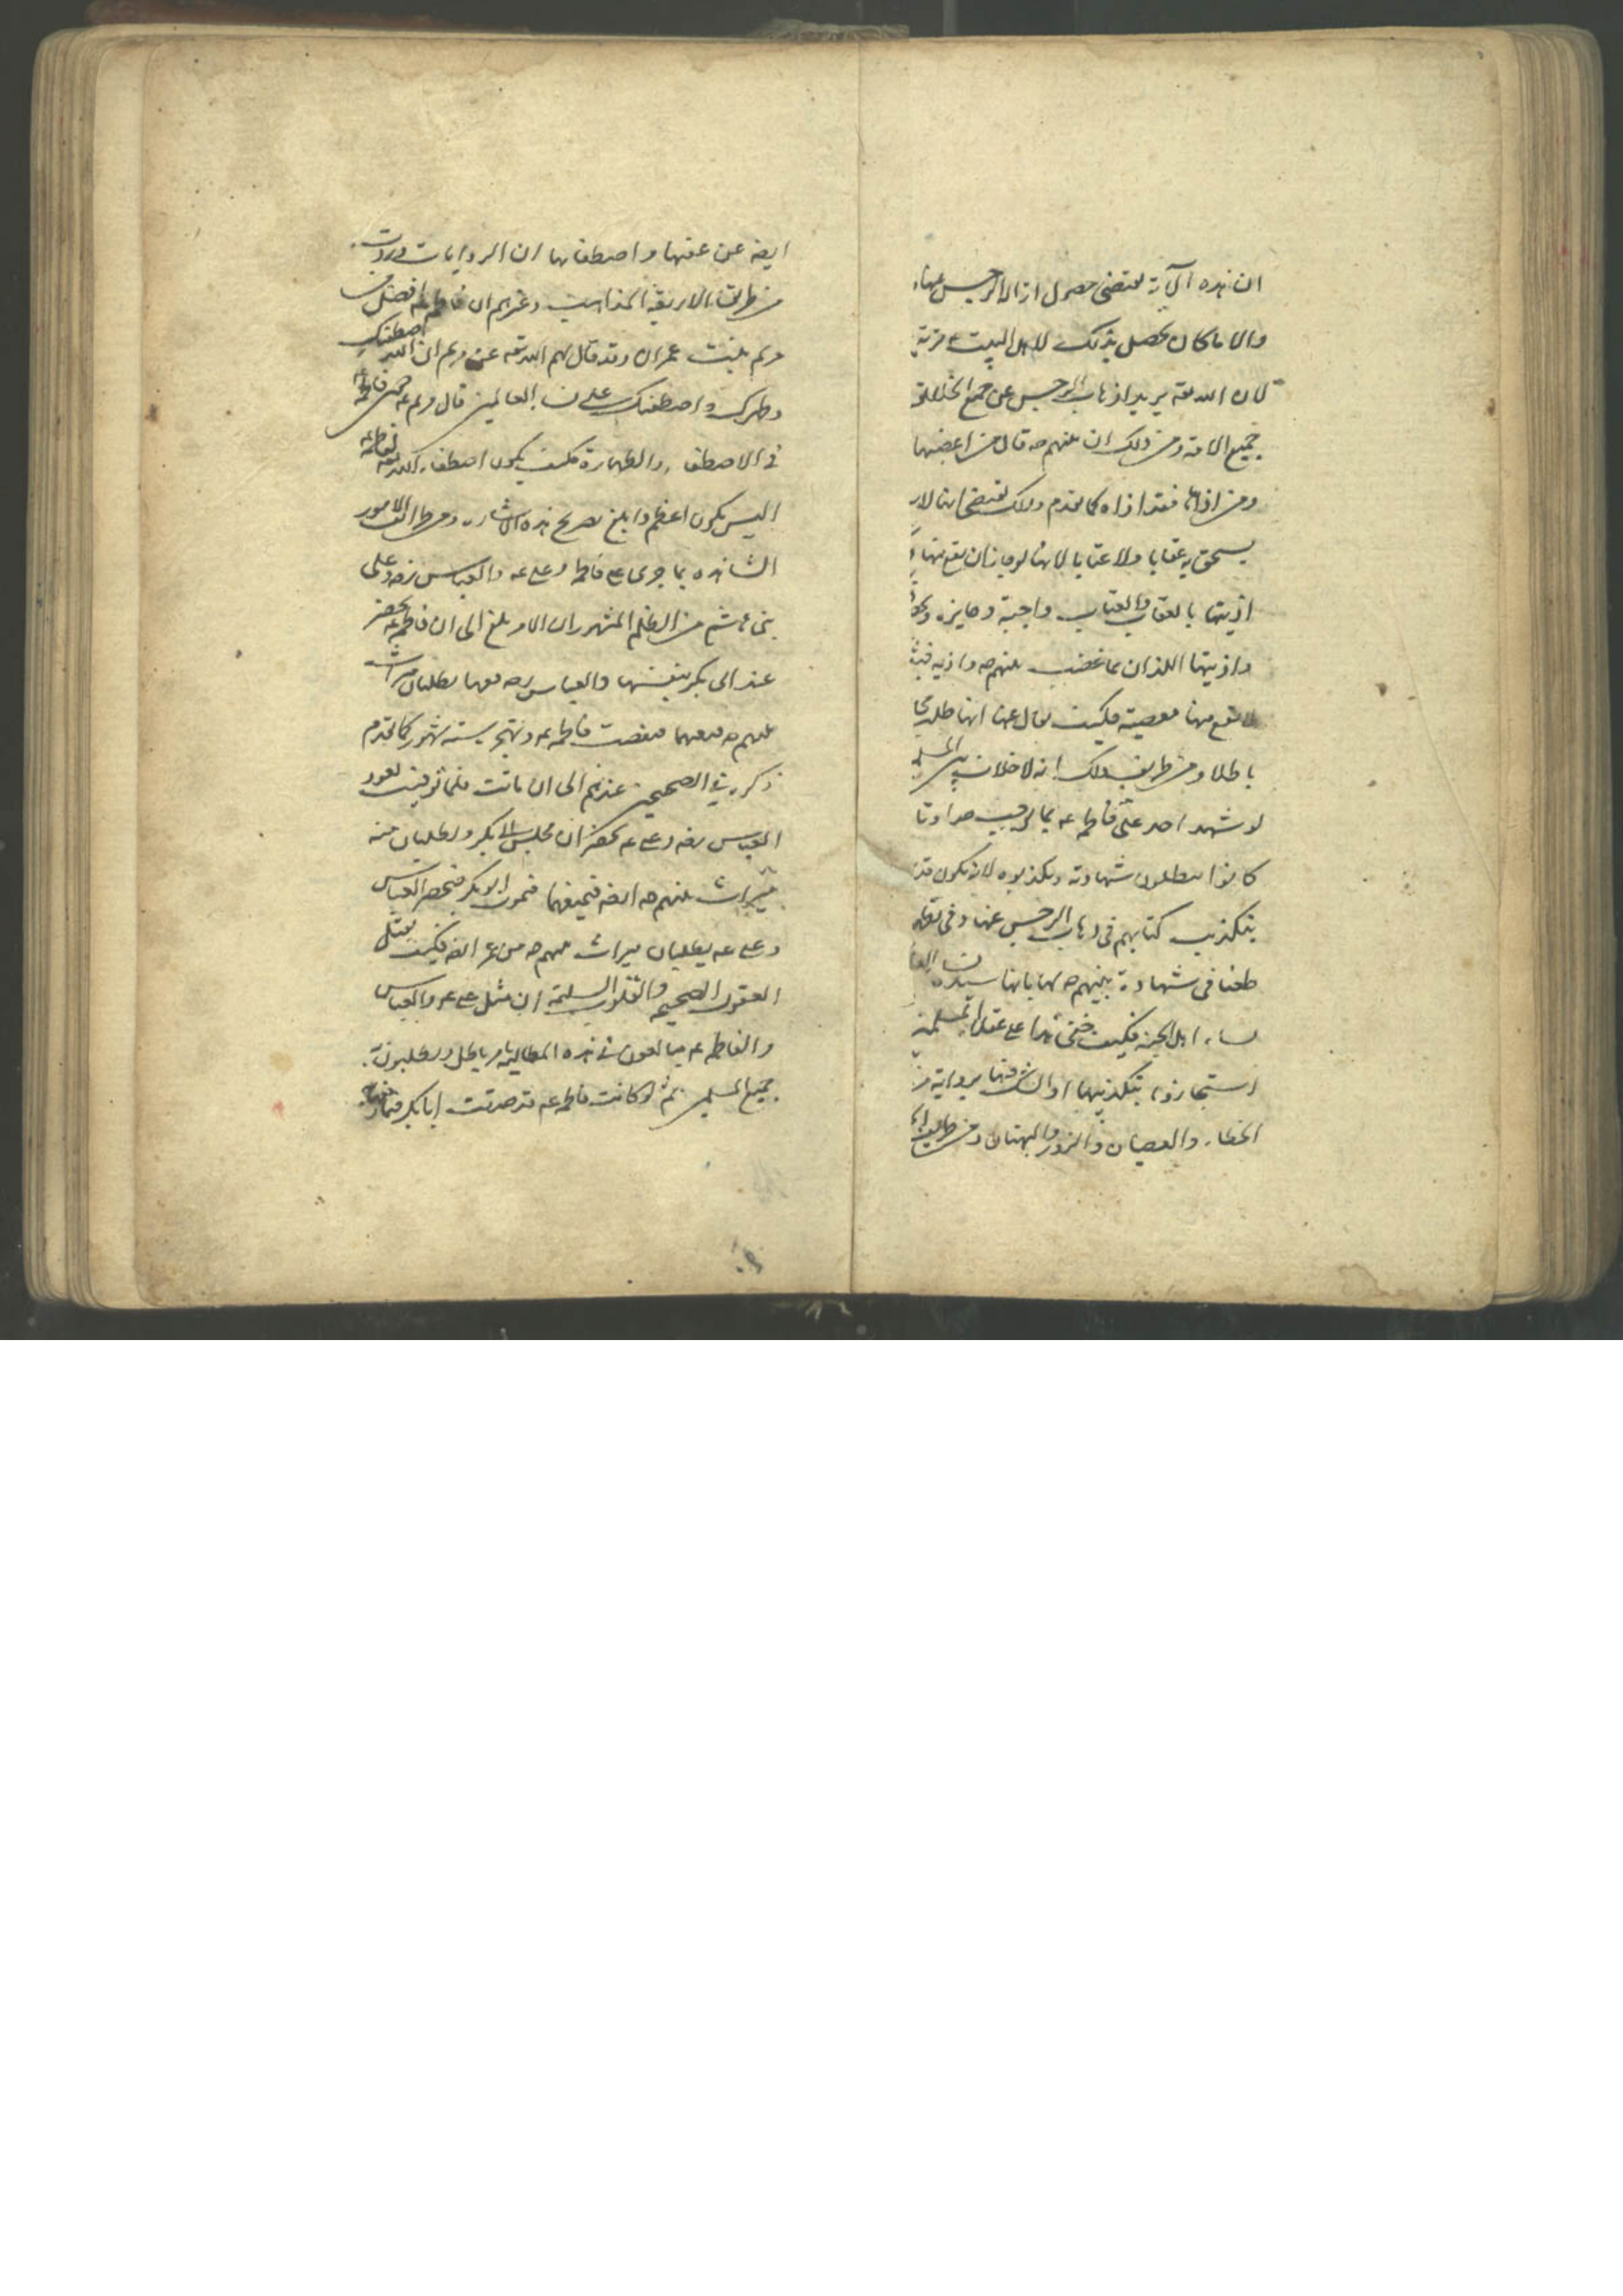 ان هذه الآية يقتضى حصول ازالة الرجس عنها
والا ما كان يحصل بذلك لاهل البيت مزية
لان الله تعه يريد اذهاب الرجس عن جميع الخلائق
جميع الامة ومن ذلك ان نبيهم صه قال من اغضبها
ومن اذاها فقد اذاه كما تقدم وذلك يقتضى انها لا
يستحق به عقابا ولا عتابا لانها لو جاز ان يقع منها
اذيتها بالعقاب والعتاب واجبة وجايزه
واذيتها اللذان بما غضب نبيهم صه واذيه
لا تقع منها معصية فكيف يقال عنها انها طلبت
باطلا ومن طريف ذلك انه لا خلاف بين المسلمين
لو شهد احد على فاطمه عه بما يوجب حدا وتا
كانوا يبطلون شهادته ويكذبوه لانه يكون
بتكذيب كتابهم فى اذهاب الرجس عنها وفى
طعنا فى شهادة نبيهم صه لها بانها سيدة نساء
نساء اهل الجنة فكيف خفى هذا على عقلاء المسلمين
استجازوا بتكذيبها او الشك فيها برواية
الخطاء والعصيان والزور والبهتان ومن طرايف
ايضه عن عفتها واصطفائها ان الروايات وردت
من طريق الاربعة المذاهب وغيرهم ان فاطمه افضل من
مريم بنت عمران وقد قال لهم الله تعه عن مريم ان الله اصطفيك
وطهرك واصطفيك على نساء العالمين قال مريم عه
فى الاصطفاء والطهارة فكيف يكون اصطفاء الله تعه لفاطمه
اليس يكون اعظم وابلغ بصريح هذه الاشاره ومن طرايف الامور
الشاهده بما جرى على فاطمه وعلى عه والعباس رضه وعلى
بنى هاشم من الظلم المشهور ان الامر بلغ الى ان فاطمه تحضر
عند ابى بكر بنفسها والعباس رضه معها يطلبان ميراث
نبيهم صه فمنعهما فغضبت فاطمه عه وتهجره ستة شهور كما تقدم
ذكره فى الصحيحين عندهم الى ان ماتت فلما توفيت يعود
العباس رضه وعلى عه يحضران مجلس ابى بكر ويطلبان منه
ميراث نبيهم صه ايضه فيمنعهما فيموت ابو بكر فيحضر العباس
وعلى عه يطلبان ميراث نبيهم صه من عمر ايضه فكيف يقبل
العقول الصحيحه والقلوب السليمة ان مثل على عه والعباس
والفاطمه عه يبالغون فى هذه المطالبه بامر باطل ويطلبون
جميع المسلمين ثم لو كانت فاطمه عه قد صدقت ابا بكر فيما